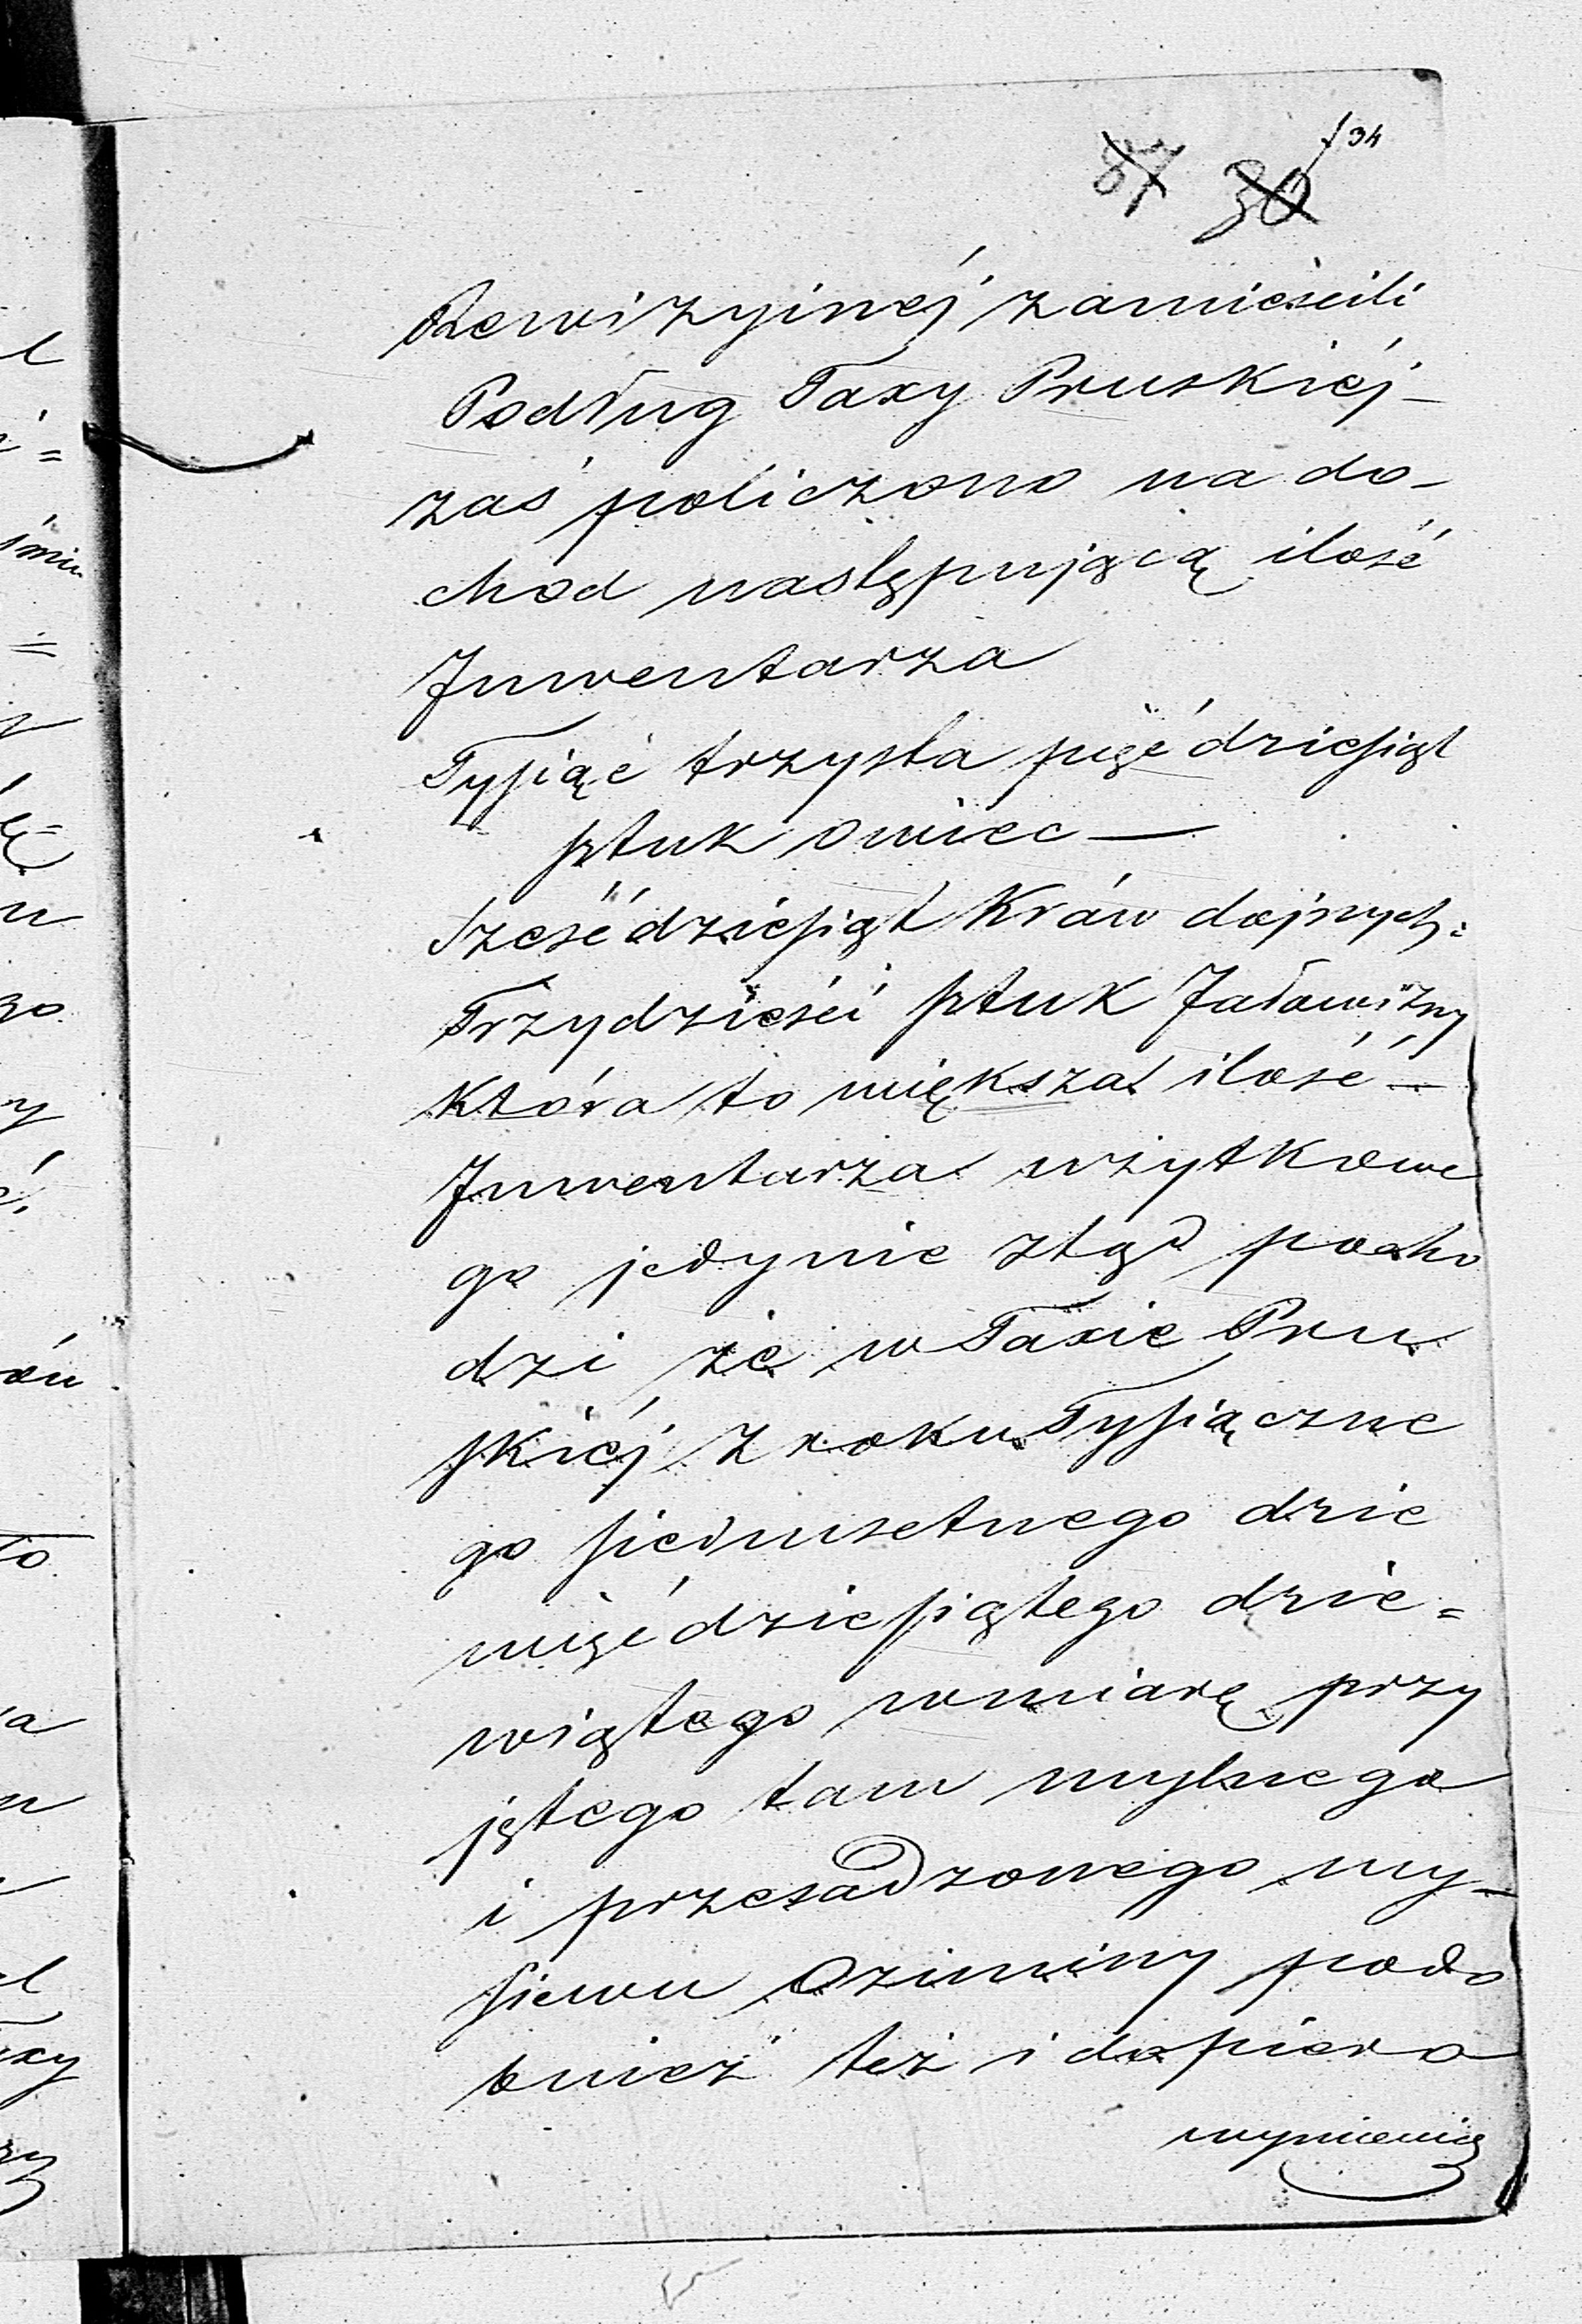 f 34
87 30
Rewizyinéj zamieścili
Podług Taxy Pruskiéj -
zaś policzono na do-
chod następuiącą ilość
Inwentarza
Tysiąć trzysta pięćdziesiąt
sztuk owiec —
Sześćdziesiąt Krów dojnych.
Trzydzieści sztuk Jałowizny
Która to większa ilość —
Inwentarza użytkowe
go jedynie ztąd pocho
dzi że w Taxie Pru
skiéj z roku Tysiączne
go siedmsetnego dzie
więćdziesiątego dzie=
wiątego wmiarę przy
jętego tam mylnego
i przesadzonego wy-
siewu Oziminy podo
bnież też i dopiero
wymienię